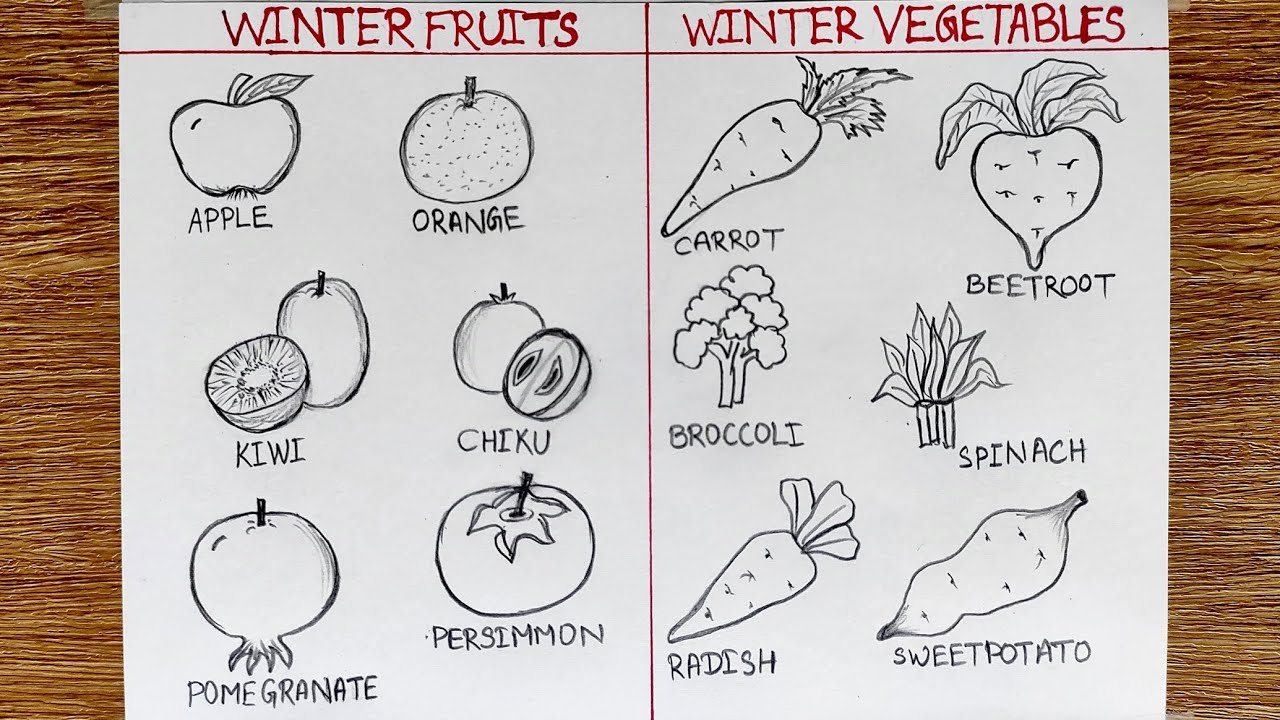 WINTER FRUITS
APPLE
ORANGE
KIWI
CHIKU
POMEGRANATE
PERSIMMON
WINTER VEGETABLES
CARROT
BEETROOT
BROCCOLI
SPINACH
RADISH
SWEETPOTATO